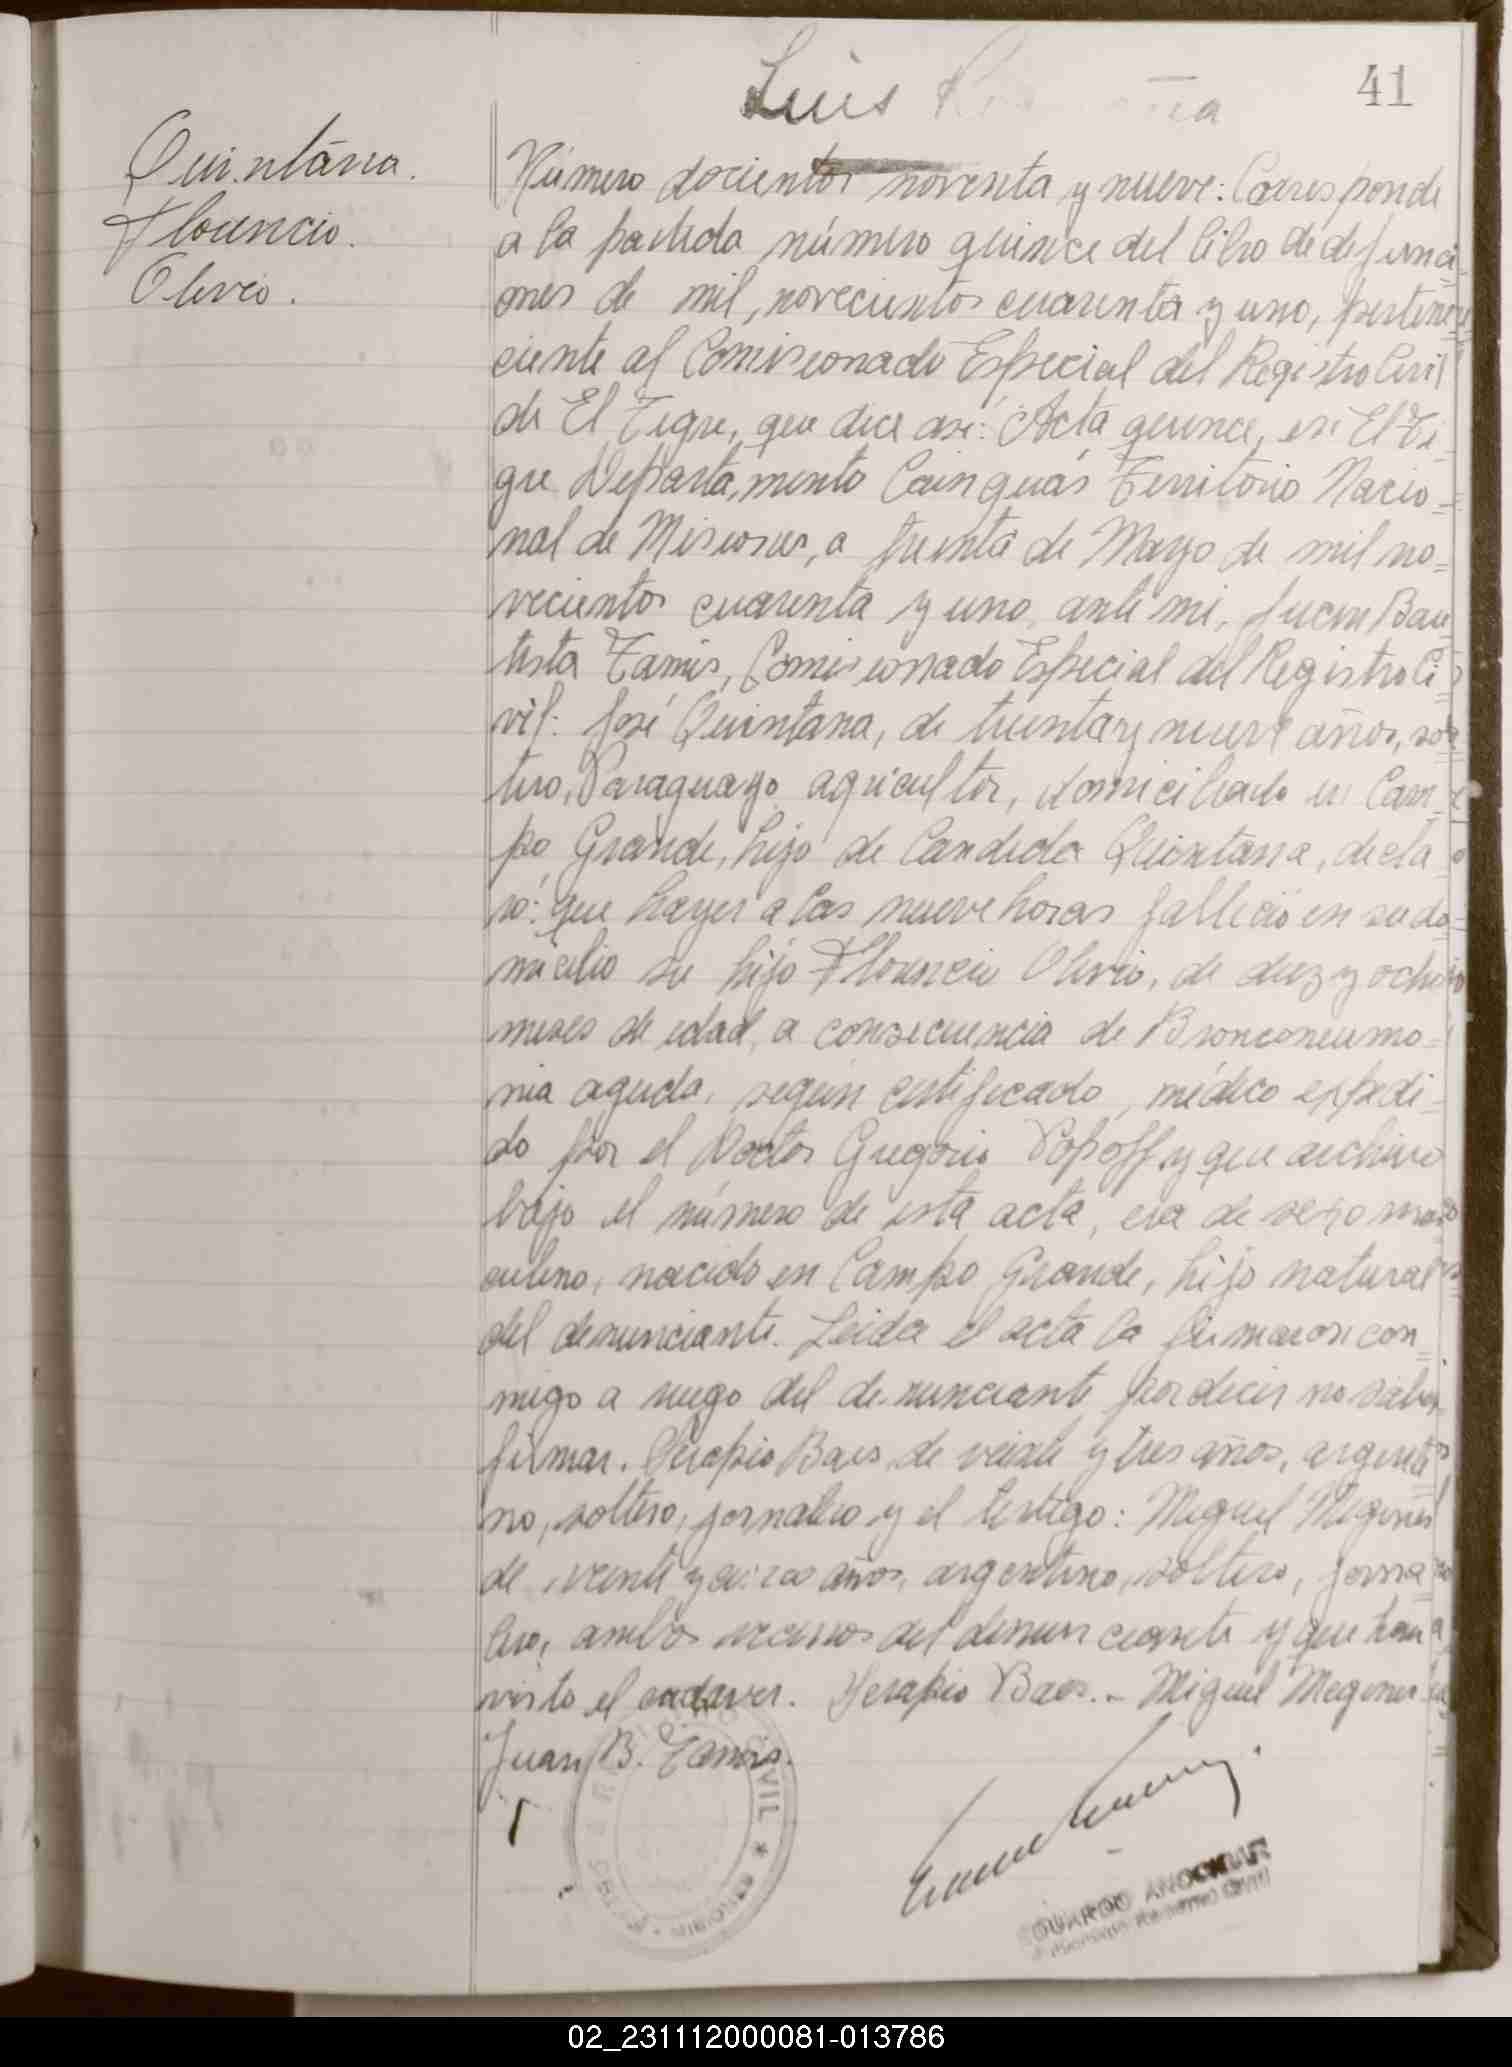 Luis
41
Quintana.
Florencio.
Olivio.
Número docientos noventa y nueve: Corresponde
a la partida número quince del libro de defunci-
ones de mil, novecientos cuarenta y uno, pertene
ciente al Comisionado Especial del Registro Civil
de El Tigre, que dice así: Acta quince, en El Ti-
gre Departamento Cainguás Territorio Nacio-
nal de Misiones, a treinta de Mayo de mil no-
vecientos cuarenta y uno, ante mi, Juan Bau-
tista Tamis, Comisionado Especial del Registro Ci-
vil: José Quintana, de treinta y nueve años, sol-
tero, Paraguayo agricultor, domiciliado en Cam-
po Grande, hijo de Candida Quintana, decla-
ró: que hayer a las nueve horas falleció en su do-
micilio su hijo Florencio Olivio, de diez y ocho
meses de edad, a consecuencia de Bronconeumo-
nia aguda, según certificado, médico expedi-
do por el Doctor Gregorio Popoff y que archivo
bajo el número de esta acta, era de sexo mas
culino, nacido en Campo Grande, hijo natural
del denunciante. Leida el acta la firmaron con-
migo a ruego del denunciante por decir no saber
firmar. Serapio Baes de veinte y tres años, argenti
no, soltero, jornalero y el testigo: Miguel
de veinte y cinco años, argentino, soltero, jorna
lero, ambos vecinos del denunciante y que han
visto el cadaver. Serapio Baes. - Miguel
Juan B. Tamis.
CIVIL *
EDUARDO ANOCIBAR
02_231112000081-013786